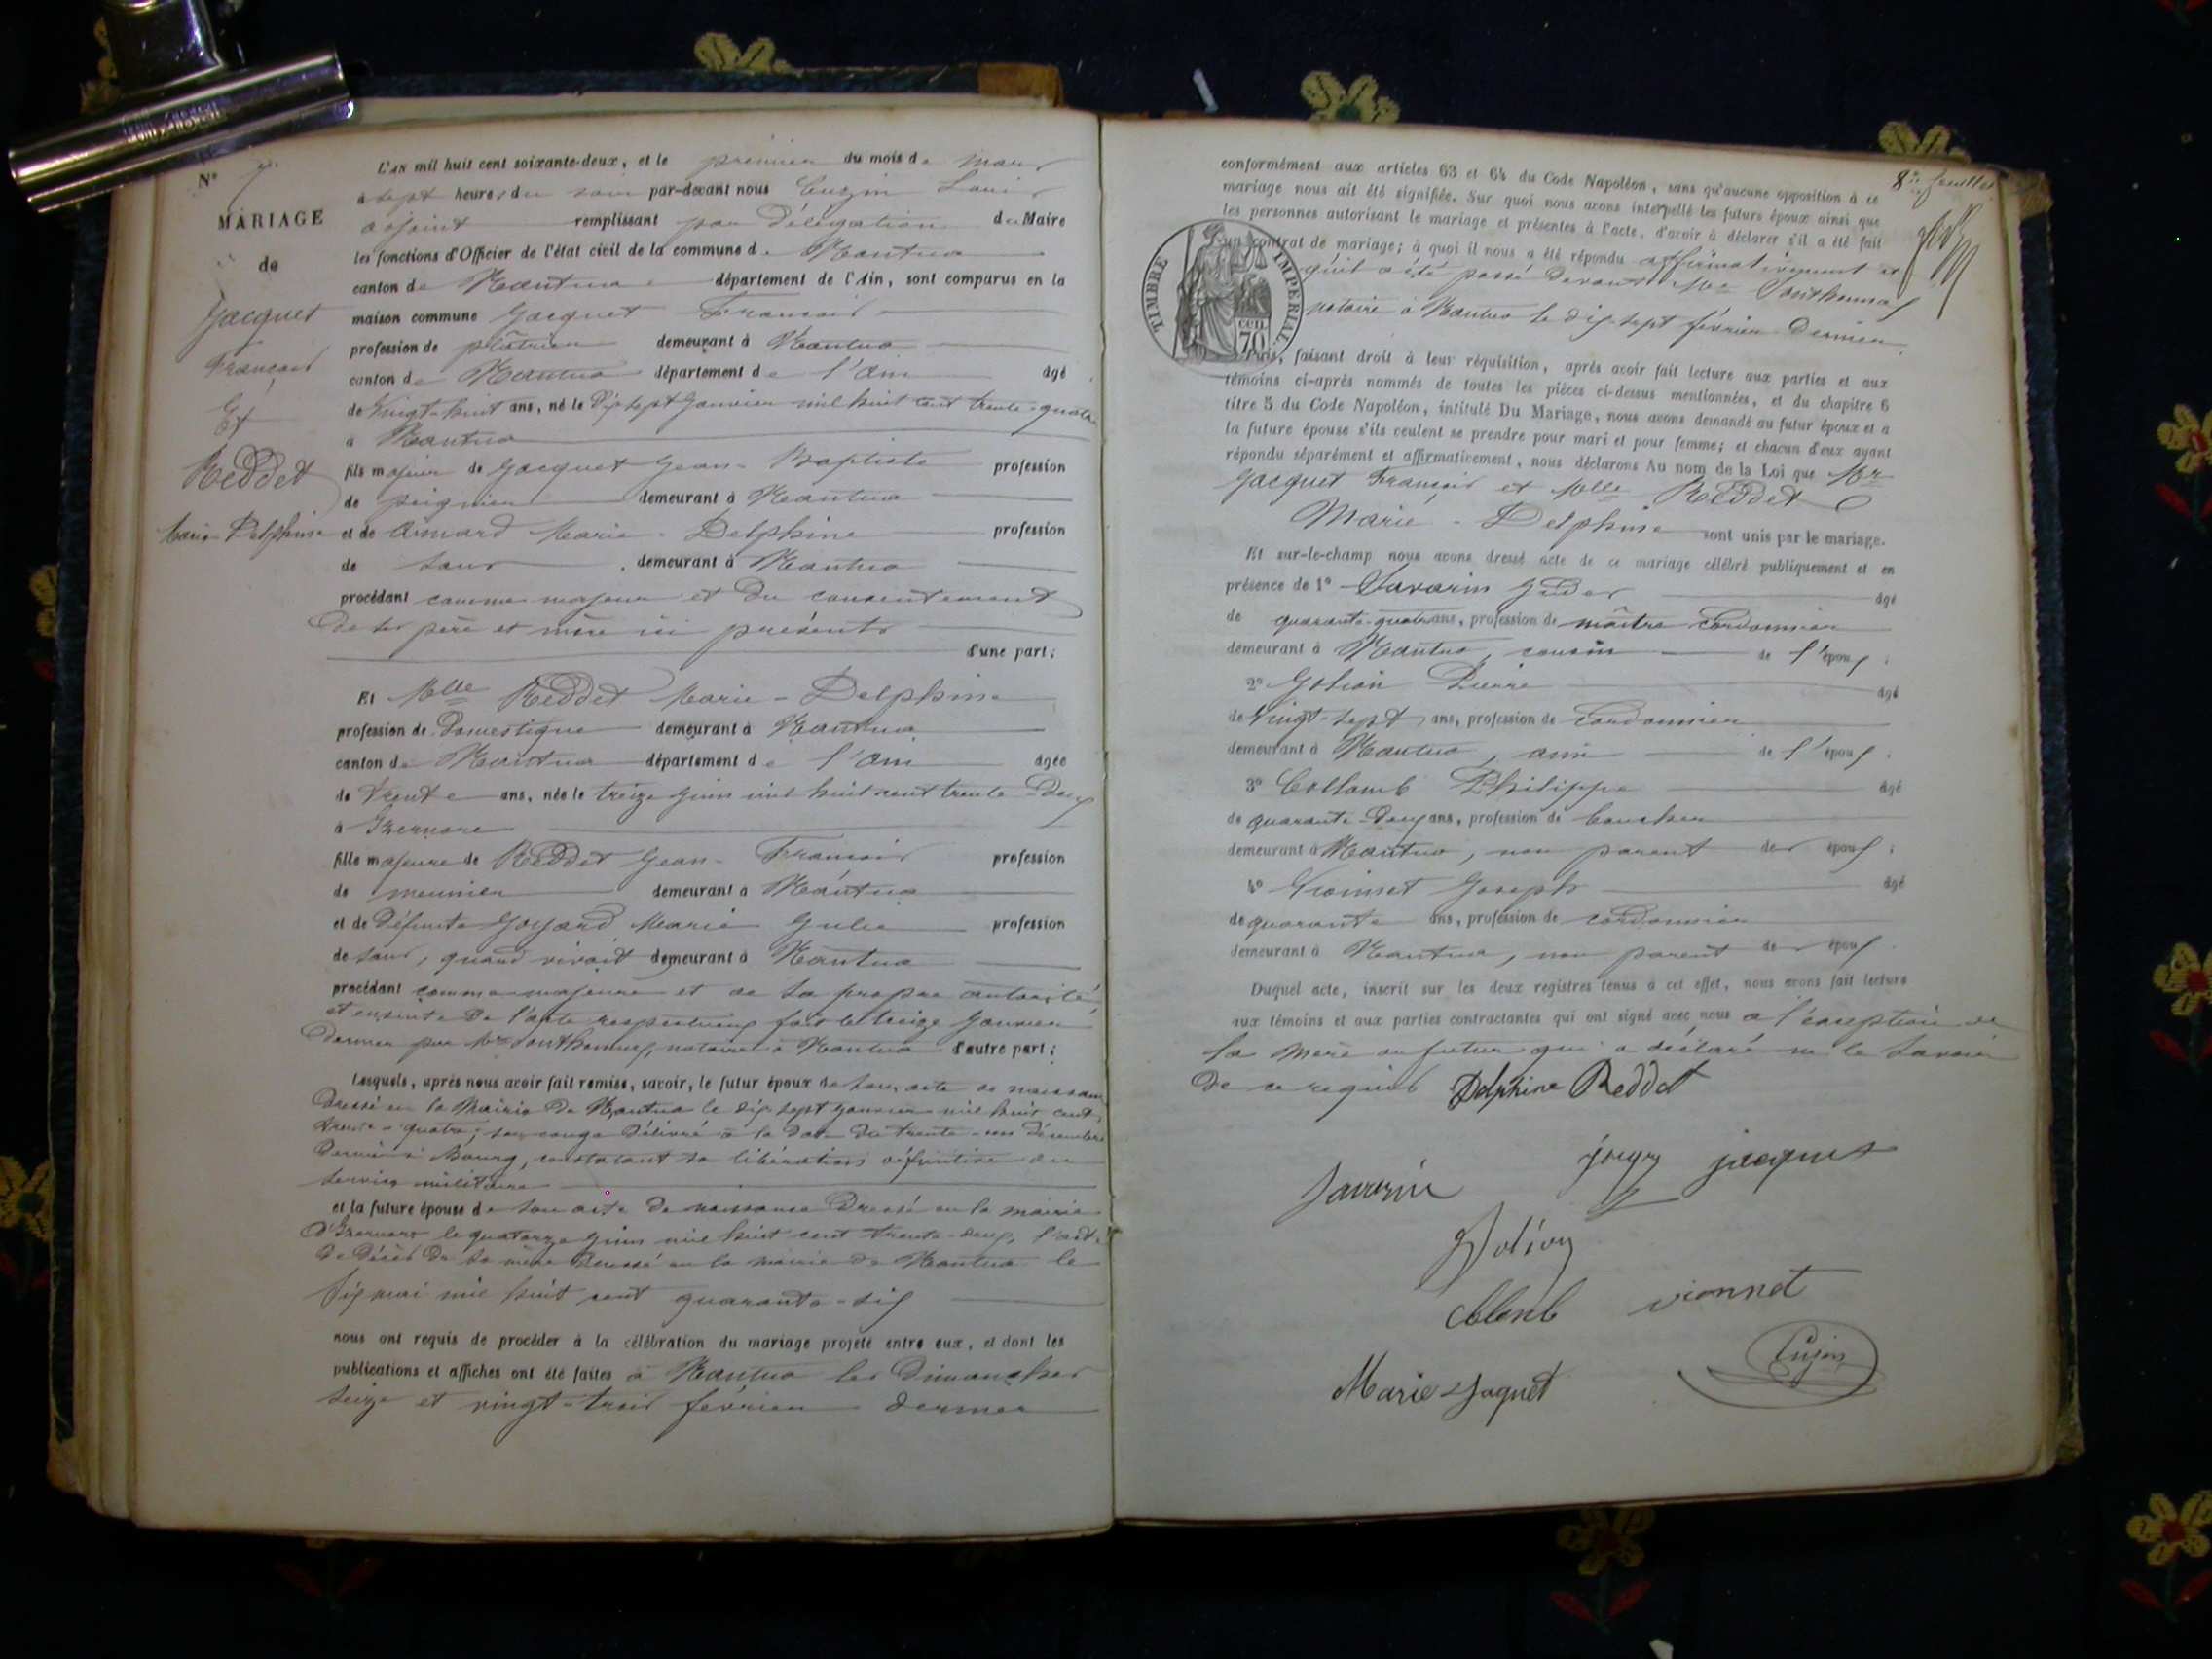 N° 7
MARIAGE
de
Jacquet
François
Et
Reddet
Marie-Delphine
L'AN mil huit cent soixante-deux, et le premier du mois de mars
à sept heures du soir par-devant nous Cuzin Louis
adjoint remplissant par Délégation du Maire
les fonctions d'Officier de l'état civil de la commune de Nantua
canton de Nantua département de l'Ain, sont comparus en la
maison commune Jacquet François
profession de plâtrier demeurant à Nantua
canton de Nantua département de l'Ain âgé
de Vingt-huit ans, né le Dix sept Janvier mil huit cent trente-quatre
à Nantua
fils majeur de Jacquet Jean-Baptiste profession
de peignier demeurant à Nantua
et de Armard Marie-Delphine profession
de sans demeurant à Nantua
procédant comme majeur et du consentement
de ses père et mère ici présents
d'une part;
Et Melle Reddet Marie-Delphine
profession de Domestique demeurant à Nantua
canton de Nantua département de l'Ain âgée
de trente ans, née le treize Juin mil huit cent trente-Deux
à Izernore
fille majeure de Reddet Jean-François profession
de meunier demeurant à Nantua
et de Défunte Goyard Marie Julie profession
de sans, quand vivait demeurant à Nantua
procédant comme majeure et de sa propre autorité,
et ensuite de l'acte respectueux fait le treize Janvier
Dernier par Me Southonnax, notaire à Nantua d'autre part;
Lesquels, après nous avoir fait remise, savoir, le futur époux de son acte de naissance
Dressé en la Mairie de Nantua le dix sept janvier mil huit cent
trente-quatre; son congé Délivré à la date du trente-un Décembre
Dernier à Bourg, constatant sa libération définitive du
service militaire
et la future épouse de son acte de naissance Dressé en la mairie
d'Izernore le quatorze Juin mil huit cent trente-deux, l'acte
de Décès de sa mère Dressé en la mairie de Nantua le
six mai mil huit cent quarante-six
nous ont requis de procéder à la célébration du mariage projeté entre eux, et dont les
publications et affiches ont été faites à Nantua les Dimanches
seize et vingt-trois février dernier
8me feuillet
conformément aux articles 63 et 64 du Code Napoléon, sans qu'aucune opposition à ce
mariage nous ait été signifiée. Sur quoi nous avons interpellé les futurs époux ainsi que
les personnes autorisant le mariage et présentes à l'acte, d'avoir à déclarer s'il a été fait
un contrat de mariage; à quoi il nous a été répondu affirmativement et
qu'il a été passé devant Me Southonnax
notaire à Nantua le dix-sept février Dernier.
TIMBRE IMPERIAL
70 cen
Puis, faisant droit à leur réquisition, après avoir fait lecture aux parties et aux
témoins ci-après nommés de toutes les pièces ci-dessus mentionnées, et du chapitre 6
titre 5 du Code Napoléon, intitulé Du Mariage, nous avons demandé au futur époux et a
la future épouse s'ils veulent se prendre pour mari et pour femme; et chacun d'eux ayant
répondu séparément et affirmativement, nous déclarons Au nom de la Loi que Mr
Jacquet François et Melle Reddet
Marie-Delphine sont unis par le mariage.
Et sur-le-champ nous avons dressé acte de ce mariage célébré publiquement et en
présence de 1° Savarin âgé
de quarante-quatre ans, profession de maître Cordonnier
demeurant à Nantua, cousin de l'époux;
2° Golion Pierre âgé
de Vingt-sept ans, profession de Cordonnier
demeurant à Nantua, ami de l'époux;
3° Collomb Philippe âgé
de quarante-Deux ans, profession de boucher
demeurant à Nantua, non parent des époux;
4° Vionnet Joseph âgé
de quarante ans, profession de cordonnier
demeurant à Nantua, non parent des époux.
Duquel acte, inscrit sur les deux registres tenus à cet effet, nous avons fait lecture
aux témoins et aux parties contractantes qui ont signé avec nous a l'exception de
la Mère du futur qui a déclaré ne le savoir
de ce requis Delphine Reddet
jacquet
Savarin
Golion
Colomb vionnet
Cuzin
Marie Jaquet